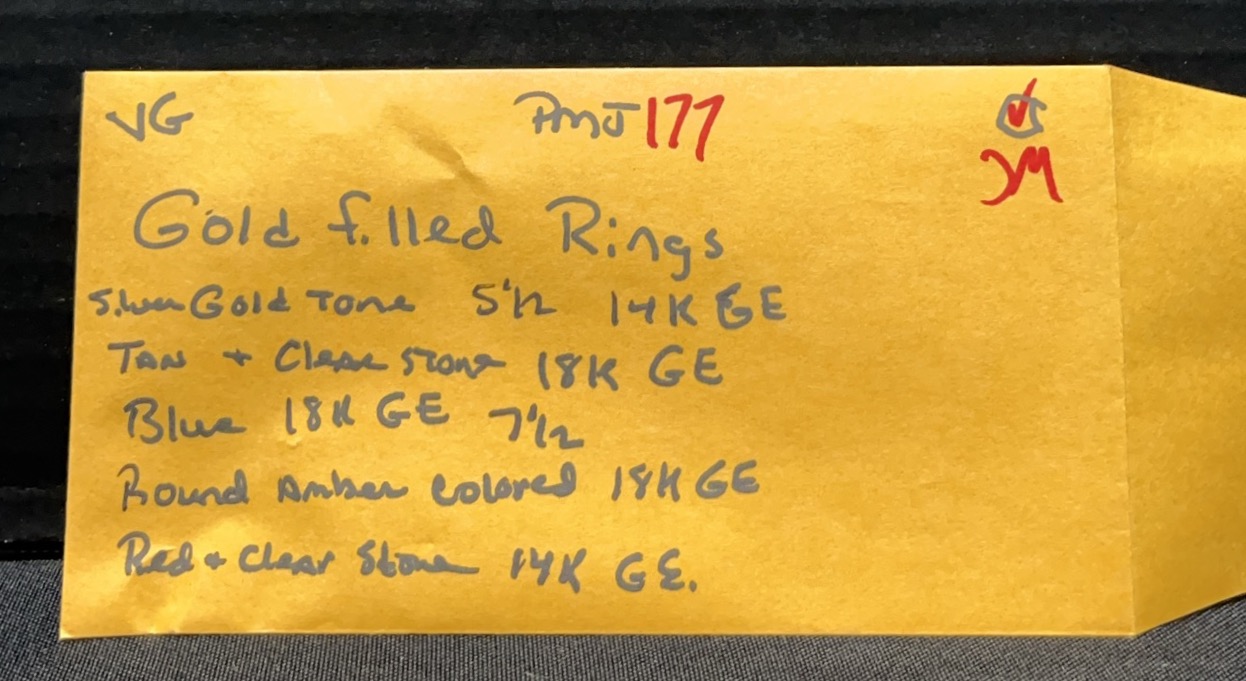 VG PMJ 177
JM
Gold filled Rings
Silver Gold Tone 5 1/2 14K GE
TAN + Clear Stone 18K GE
Blue 18K GE 7 1/2
Round Amber Colored 18K GE
Red + Clear Stone 14K GE.